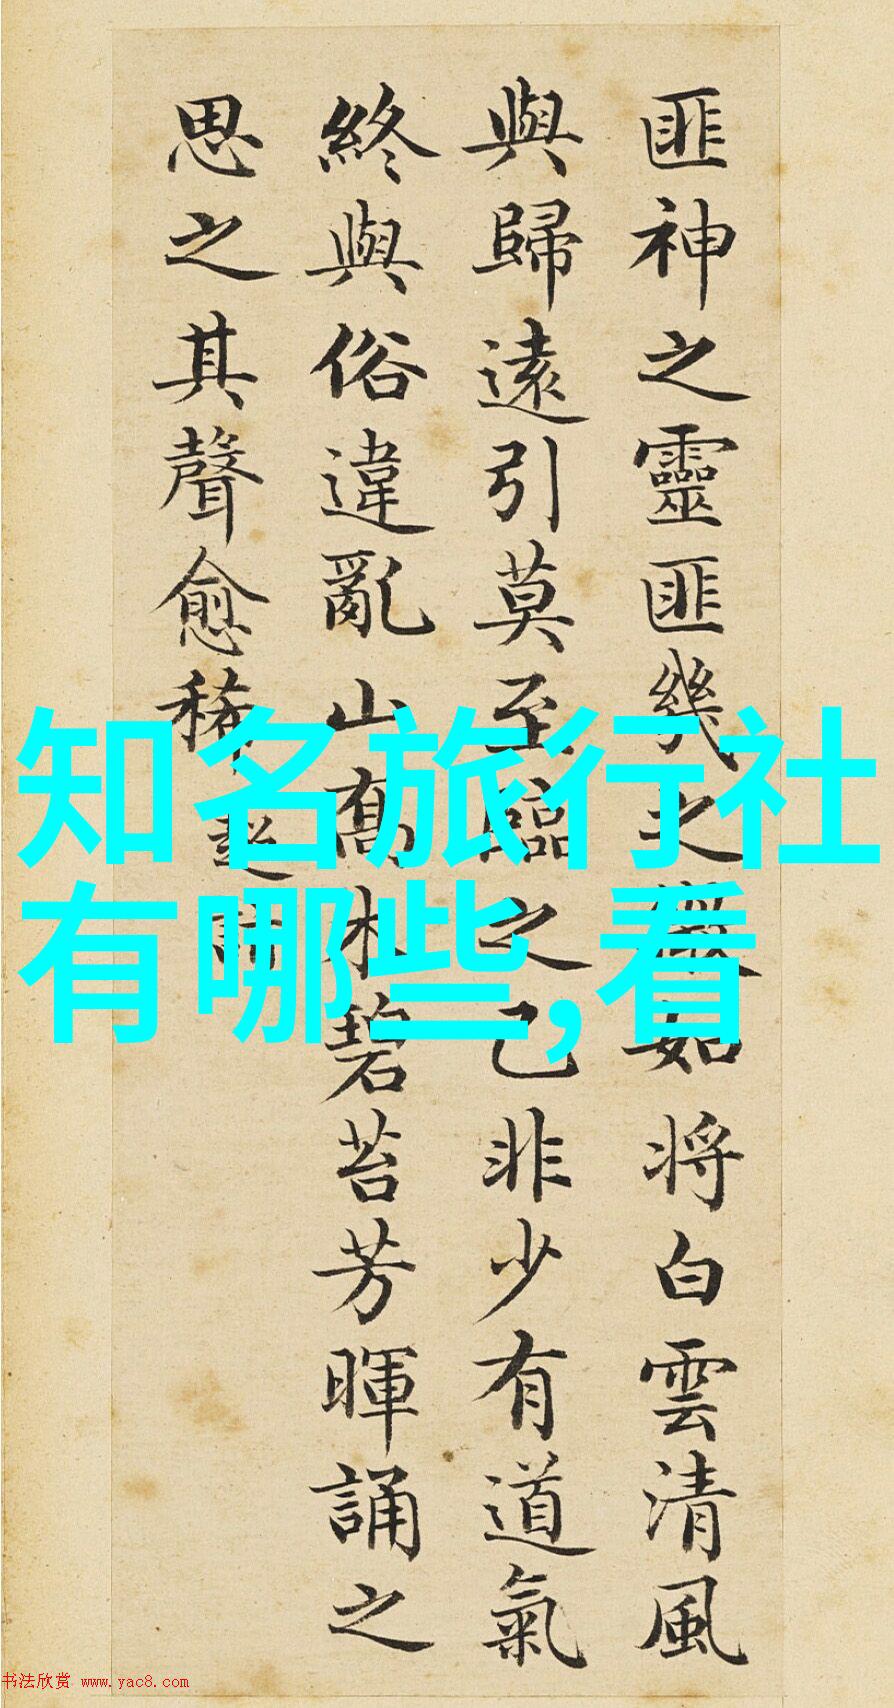 匪神之靈匪幾之微如将白雲清風
與歸遠引莫至臨之已非少有道氣
終與俗違亂山高木碧苔芳暉誦之
思之其聲愈稀 超詣
知名旅行社
有哪些,看
书法欣赏 www.yac8.com